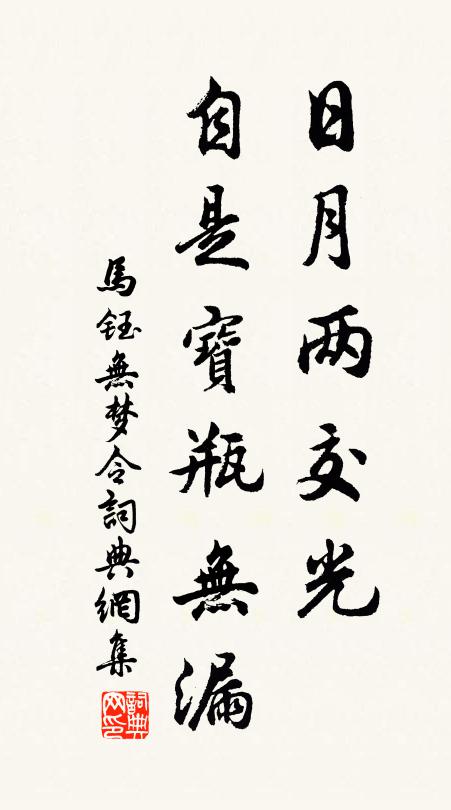 日月两交光
自是寶瓶無漏
馬鈺無梦令詞典網集
詞典网印